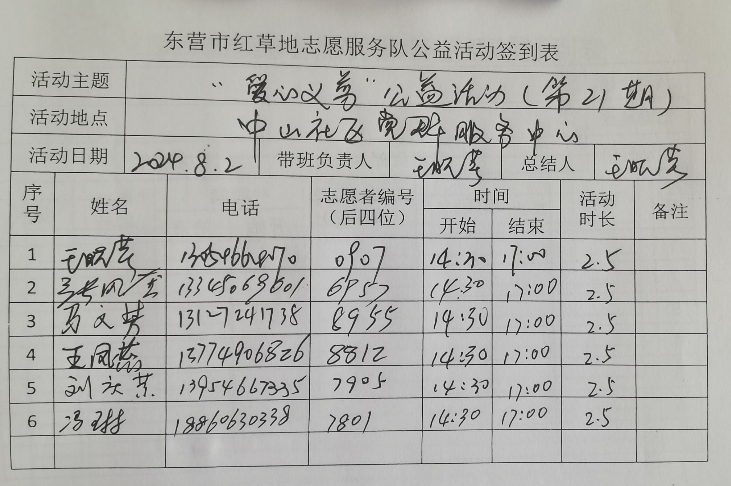 东营市红草地志愿服务队公益活动签到表
活动主题 "爱心义剪"公益活动(第21期)
活动地点 中山社区党群服务中心
活动日期 2024.8.2 带班负责人 总结人
序号 姓名 电话 志愿者编号(后四位) 时间 开始 结束 活动时长 备注
1 0907 14:30 17:00 2.5
2 14:30 17:00 2.5
3 13127241738 8955 14:30 17:00 2.5
4 王凤燕 13774906826 8812 14:30 17:00 2.5
5 13954667335 7905 14:30 17:00 2.5
6 18860630338 7801 14:30 17:00 2.5